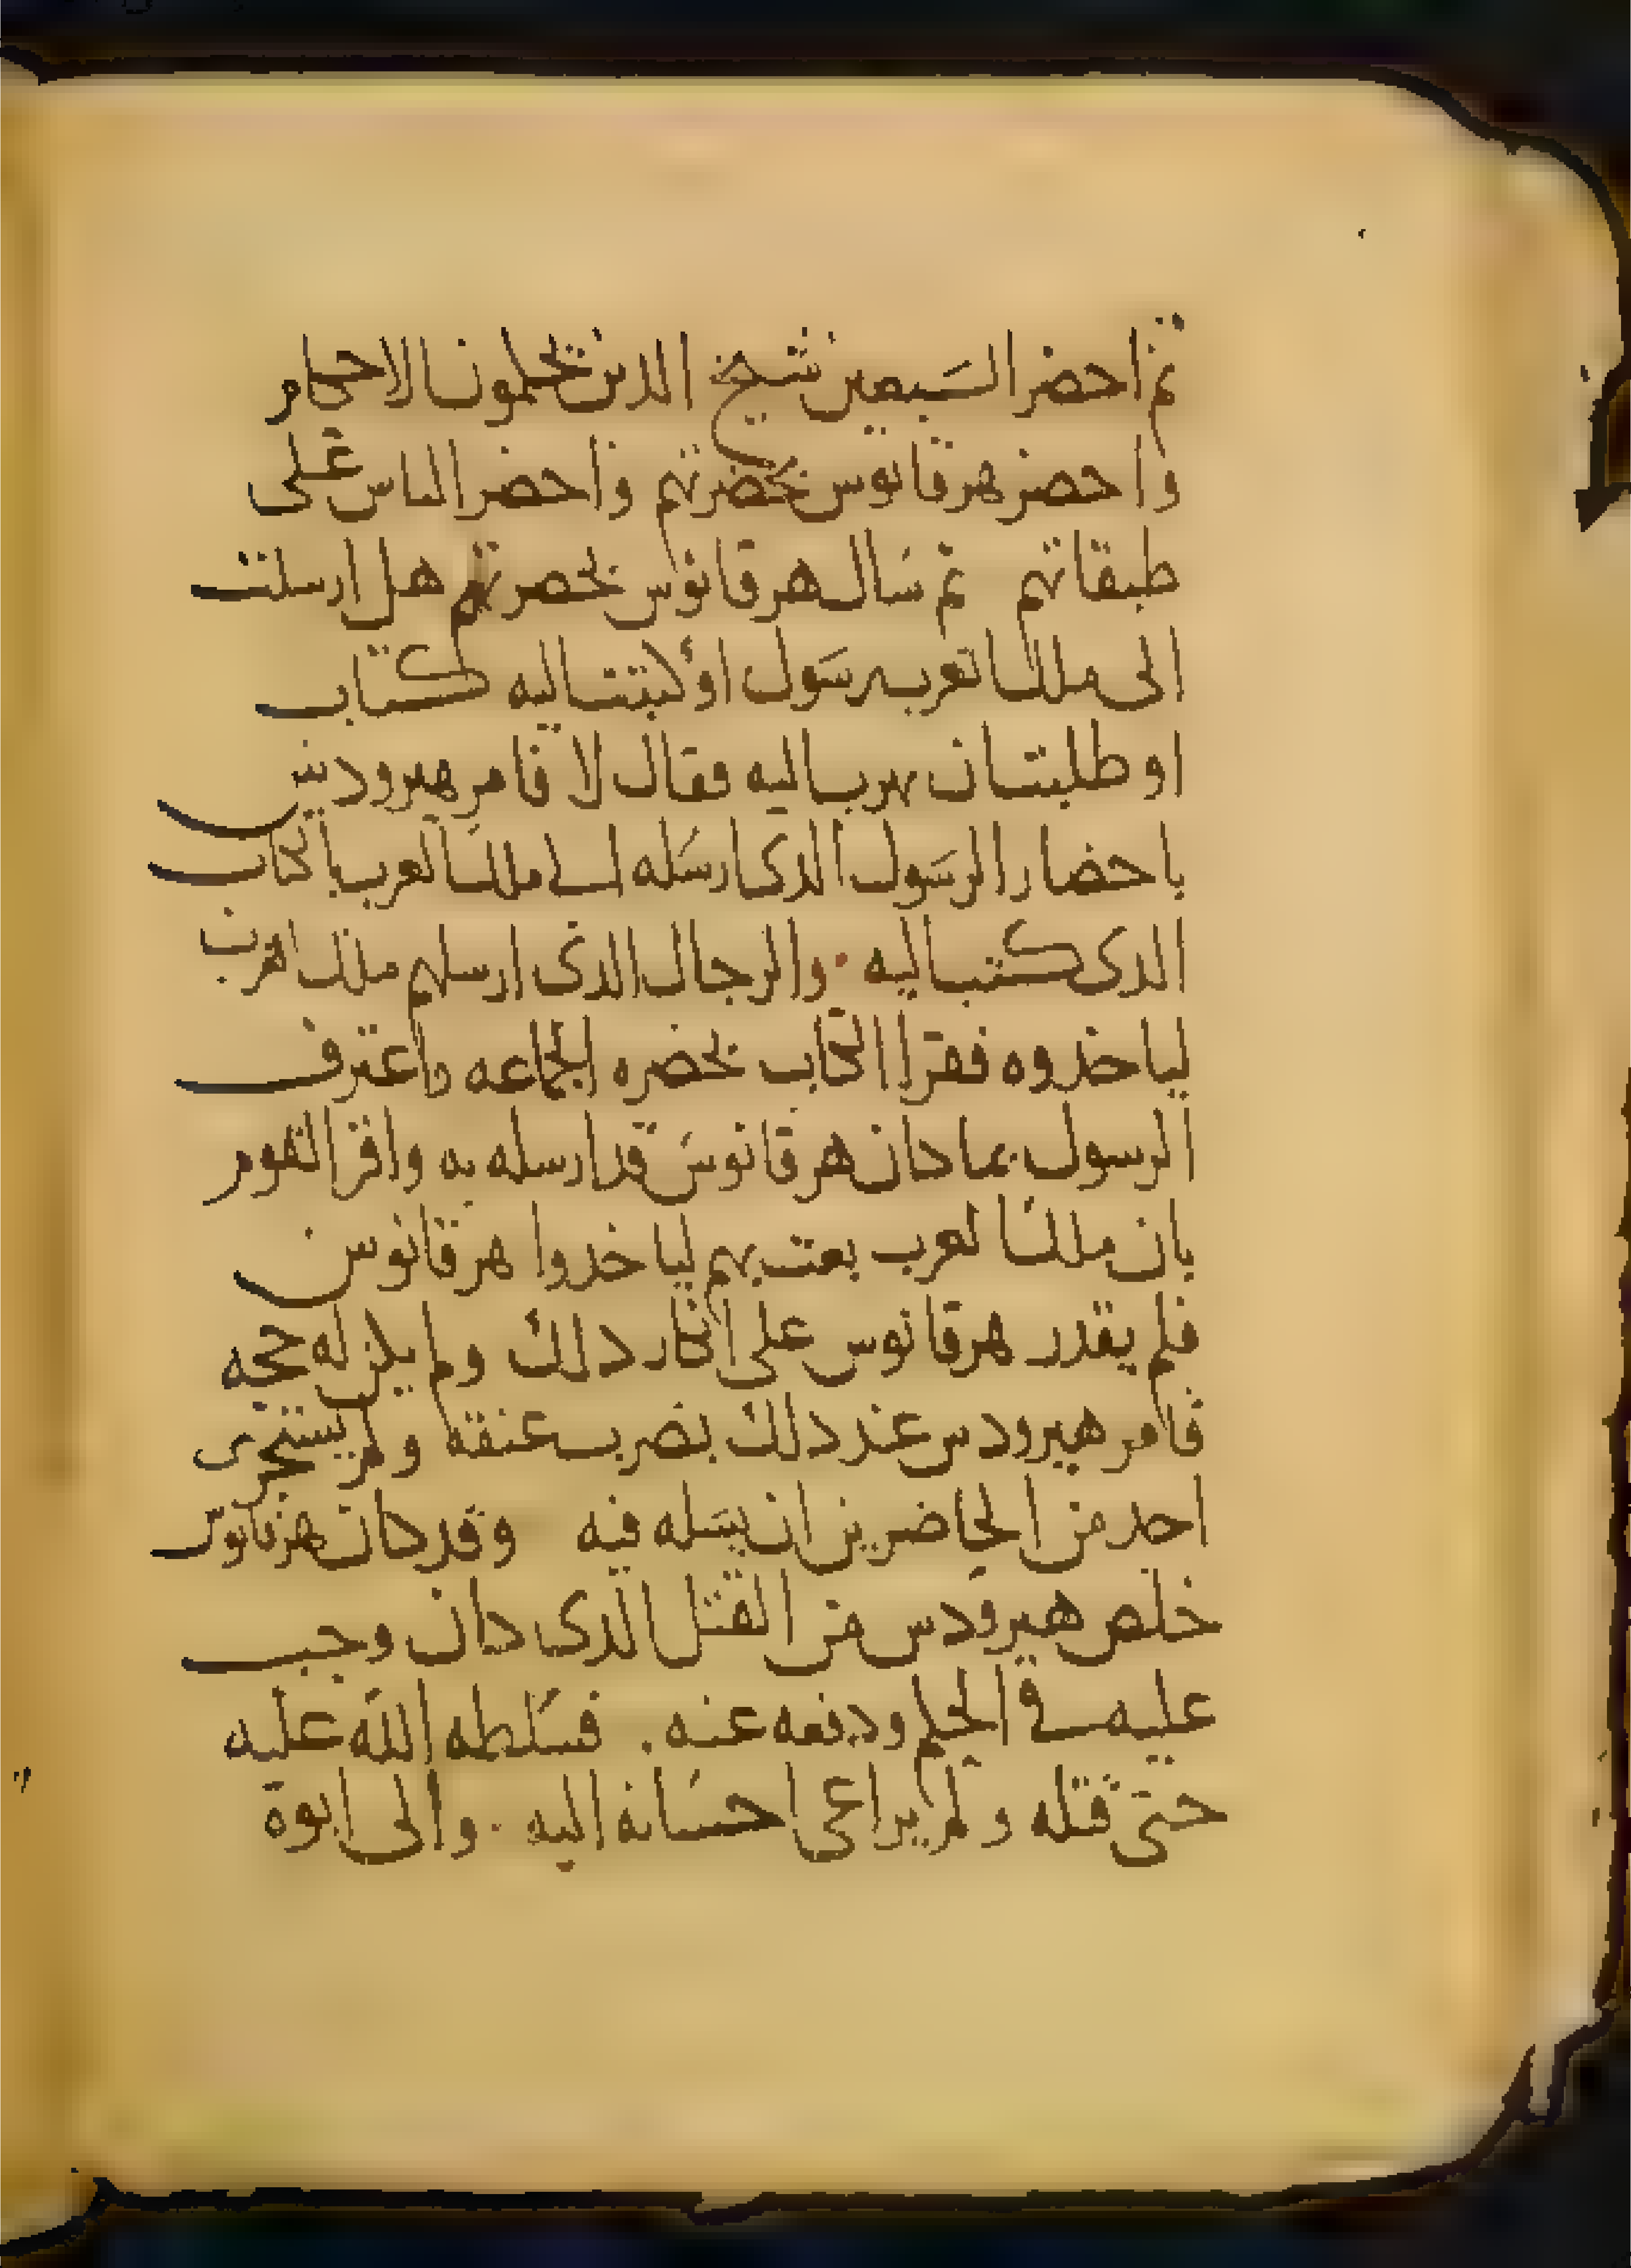 ثم احضر السبعين شيخ الدين يحكمون الاحكام
واحضر هرقانوس بحضرتهم واحضر الناس على
طبقاتهم ثم سال هرقانوس بحضرتهم هل ارسلت
الى ملك العرب رسول او كتبت اليه كتاب
او طلبت ان تهرب اليه فقال لا فامر هيرودس
باحضار الرسول الدى ارسله الى ملك العرب بالكتاب
الدى كتب اليه · والرجال الدى ارسلهم ملك العرب
لياخدوه فقرا الكتاب بحضره الجماعه واعترف
الرسول بما كان هرقانوس قد ارسله به واقر القوم
بان ملك العرب بعت بهم لياخدوا هرقانوس
فلم يقدر هرقانوس على انكار دلك ولم يكن له حجه
فامر هيرودس عند دلك بضرب عنقه ولم يستجرى
احد من الحاضرين ان يسله فيه وقد كان هرقانوس
خلص هيرودس من القتل الدى كان وجب
عليه في الحكم ودفعه عنه . فسلطه الله عليه
حتى قتله ولم يراعى احسانه اليه · والى ابوه